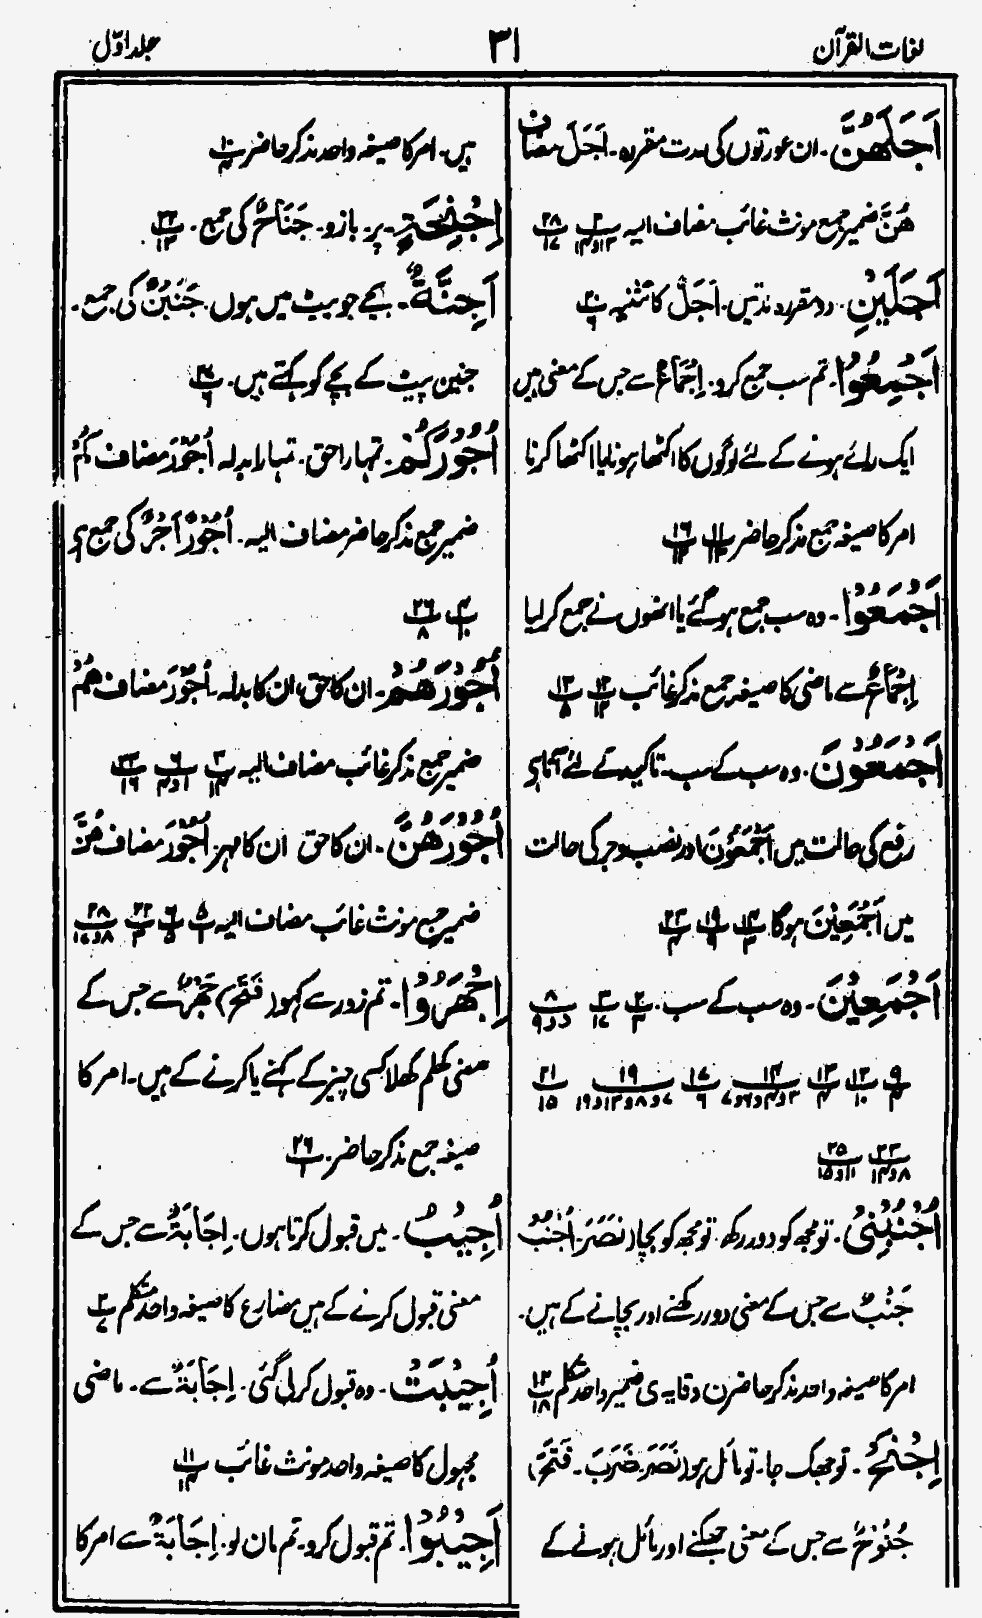 لغات القرآن
۳۱
جلد اوّل
اَجَلَھُنَّ ۔ ان عورتوں کی مدت مقررہ ۔ اَجَلَ مضاف
ھُنَّ ضمیر جمع مونث غائب مضاف الیہ
اَجَلَیْنِ ۔ دو مقررہ مدتیں ۔ اَجَلٌ کا تثنیہ
اَجْمِعُوْا ۔ تم سب جمع کرو ۔ اِجْمَاعٌ سے جس کے معنی ہیں
ایک رائے ہونے کے لئے لوگوں کا اکٹھا ہونا یا اکٹھا کرنا
امر کا صیغہ جمع مذکر حاضر
اَجْمَعُوْا ۔ وہ سب جمع ہوگئے یا انھوں نے جمع کر لیا
اِجْمَاعٌ سے ماضی کا صیغہ جمع مذکر غائب
اَجْمَعُوْنَ ۔ وہ سب کے سب ۔ تاکید کے لئے آتا ہی
رفع کی حالت میں اَجْمَعُوْنَ اور نصب و جر کی حالت
میں اَجْمَعِیْنَ ہوگا
اَجْمَعِیْنَ ۔ وہ سب کے سب ۔
اُجْنُبْنِیْ ۔ تو مجھ کو دور رکھ ۔ تو مجھ کو بچا (نَصَرَ) اُجْنُبْ
جَنْبٌ سے جس کے معنی دور رکھنے اور بچانے کے ہیں ۔
امر کا صیغہ واحد مذکر حاضر ن وقایہ ی ضمیر واحد متکلم
اِجْنَحْ ۔ تو جھک جا ۔ تو مائل ہو (نَصَرَ ضَرَبَ ۔ فَتَحَ)
جُنُوْحٌ سے جس کے معنی جھکنے اور مائل ہونے کے
ہیں ۔ امر کا صیغہ واحد مذکر حاضر
اَجْنِحَۃٍ ۔ پر ۔ بازو ۔ جَنَاحٌ کی جمع ۔
اَجِنَّۃٌ ۔ بچے جو پیٹ میں ہوں ۔ جَنِیْنٌ کی جمع ۔
جنین پیٹ کے بچے کو کہتے ہیں ۔
اُجُوْرَکُمْ ۔ تمہارا حق ۔ تمہارا بدلہ اُجُوْرَ مضاف کُمْ
ضمیر جمع مذکر حاضر مضاف الیہ ۔ اُجُوْرٌ اَجْرٌ کی جمع ہی
اُجُوْرَھُمْ ۔ ان کا حق، ان کا بدلہ ۔ اُجُوْرَ مضاف ھُمْ
ضمیر جمع مذکر غائب مضاف الیہ
اُجُوْرَھُنَّ ۔ ان کا حق ان کا مہر اُجُوْرَ مضاف ھُنَّ
ضمیر جمع مونث غائب مضاف الیہ
اِجْھَرُوْا ۔ تم زور سے کہو (فَتَحَ) جَھْرٌ سے جس کے
معنی کھلم کھلا کسی چیز کے کہنے یا کرنے کے ہیں ۔ امر کا
صیغہ جمع مذکر حاضر ۔
اُجِیْبُ ۔ میں قبول کرتا ہوں ۔ اِجَابَۃٌ سے جس کے
معنی قبول کرنے کے ہیں مضارع کا صیغہ واحد متکلم
اُجِیْبَتْ ۔ وہ قبول کر لی گئی ۔ اِجَابَۃٌ سے ۔ ماضی
مجہول کا صیغہ واحد مونث غائب
اَجِیْبُوْا ۔ تم قبول کرو ۔ تم مان لو ۔ اِجَابَۃٌ سے امر کا